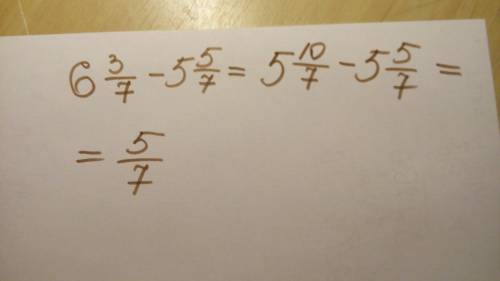 6 3/7 - 5 5/7 = 5 10/7 - 5 5/7 =
= 5/7